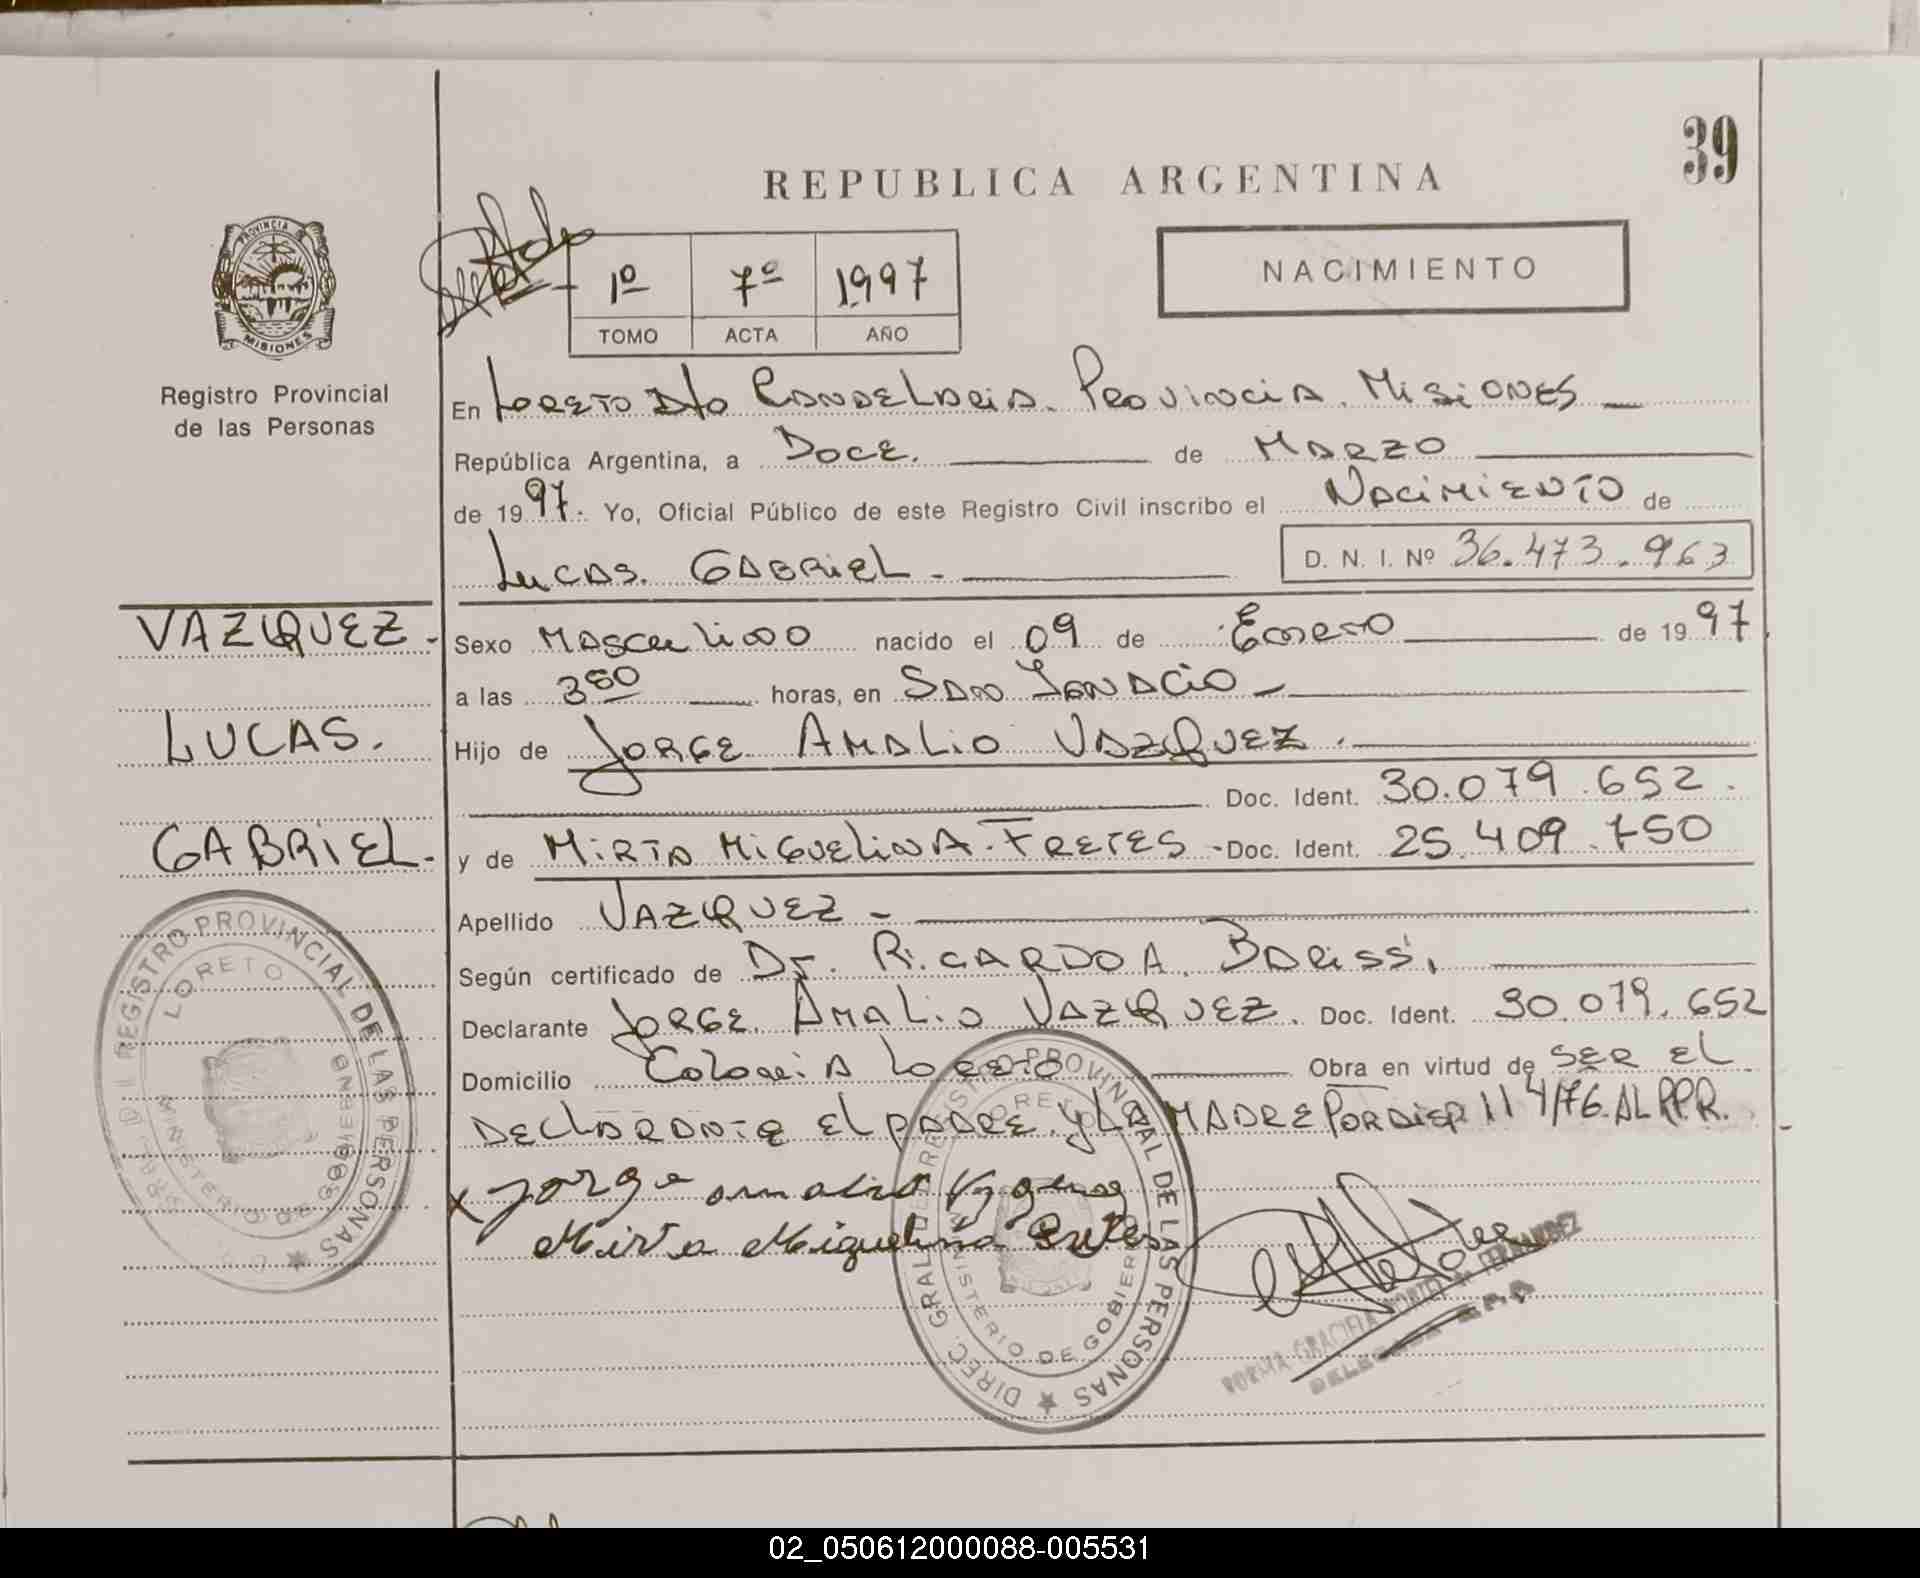 39
REPUBLICA ARGENTINA
PROVINCIA DE
MISIONES
Registro Provincial
de las Personas
1º 7º 1997
TOMO ACTA AÑO
NACIMIENTO
En Loreto Dto Candelaria. Provincia. Misiones
República Argentina, a Doce. de Marzo
de 1997. Yo, Oficial Público de este Registro Civil inscribo el Nacimiento de
Lucas. Gabriel. D. N. I. Nº 36.473.963
VAZQUEZ.
LUCAS.
GABRIEL.
Sexo Masculino nacido el 09 de Enero de 1997
a las horas, en San Ignacio
Hijo de Jorge Amalio Vazquez.
Doc. Ident. 30.079.652.
y de Mirta Miguelina. Fretes - Doc. Ident. 25.409.750
Apellido Vazquez
Según certificado de Dr. Ricardo A. Barissi
Declarante Jorge. Amalio Vazquez. Doc. Ident. 30.079.652
Domicilio Colonia Loreto Obra en virtud de SER EL
DECLARANTE EL PADRE. y LA MADRE POR 114/76. AL P.P.R.
x Jorge
Mirta Miguelina Fretes
REGISTRO PROVINCIAL DE LAS PERSONAS
LORETO
MINISTERIO DE GOBIERNO
DIREC. GRAL. DE REGISTRO PROVINCIAL DE LAS PERSONAS
LORETO
MINISTERIO DE GOBIERNO
NORMA GRACIELA de FERNANDEZ
DELEGADA
02_050612000088-005531